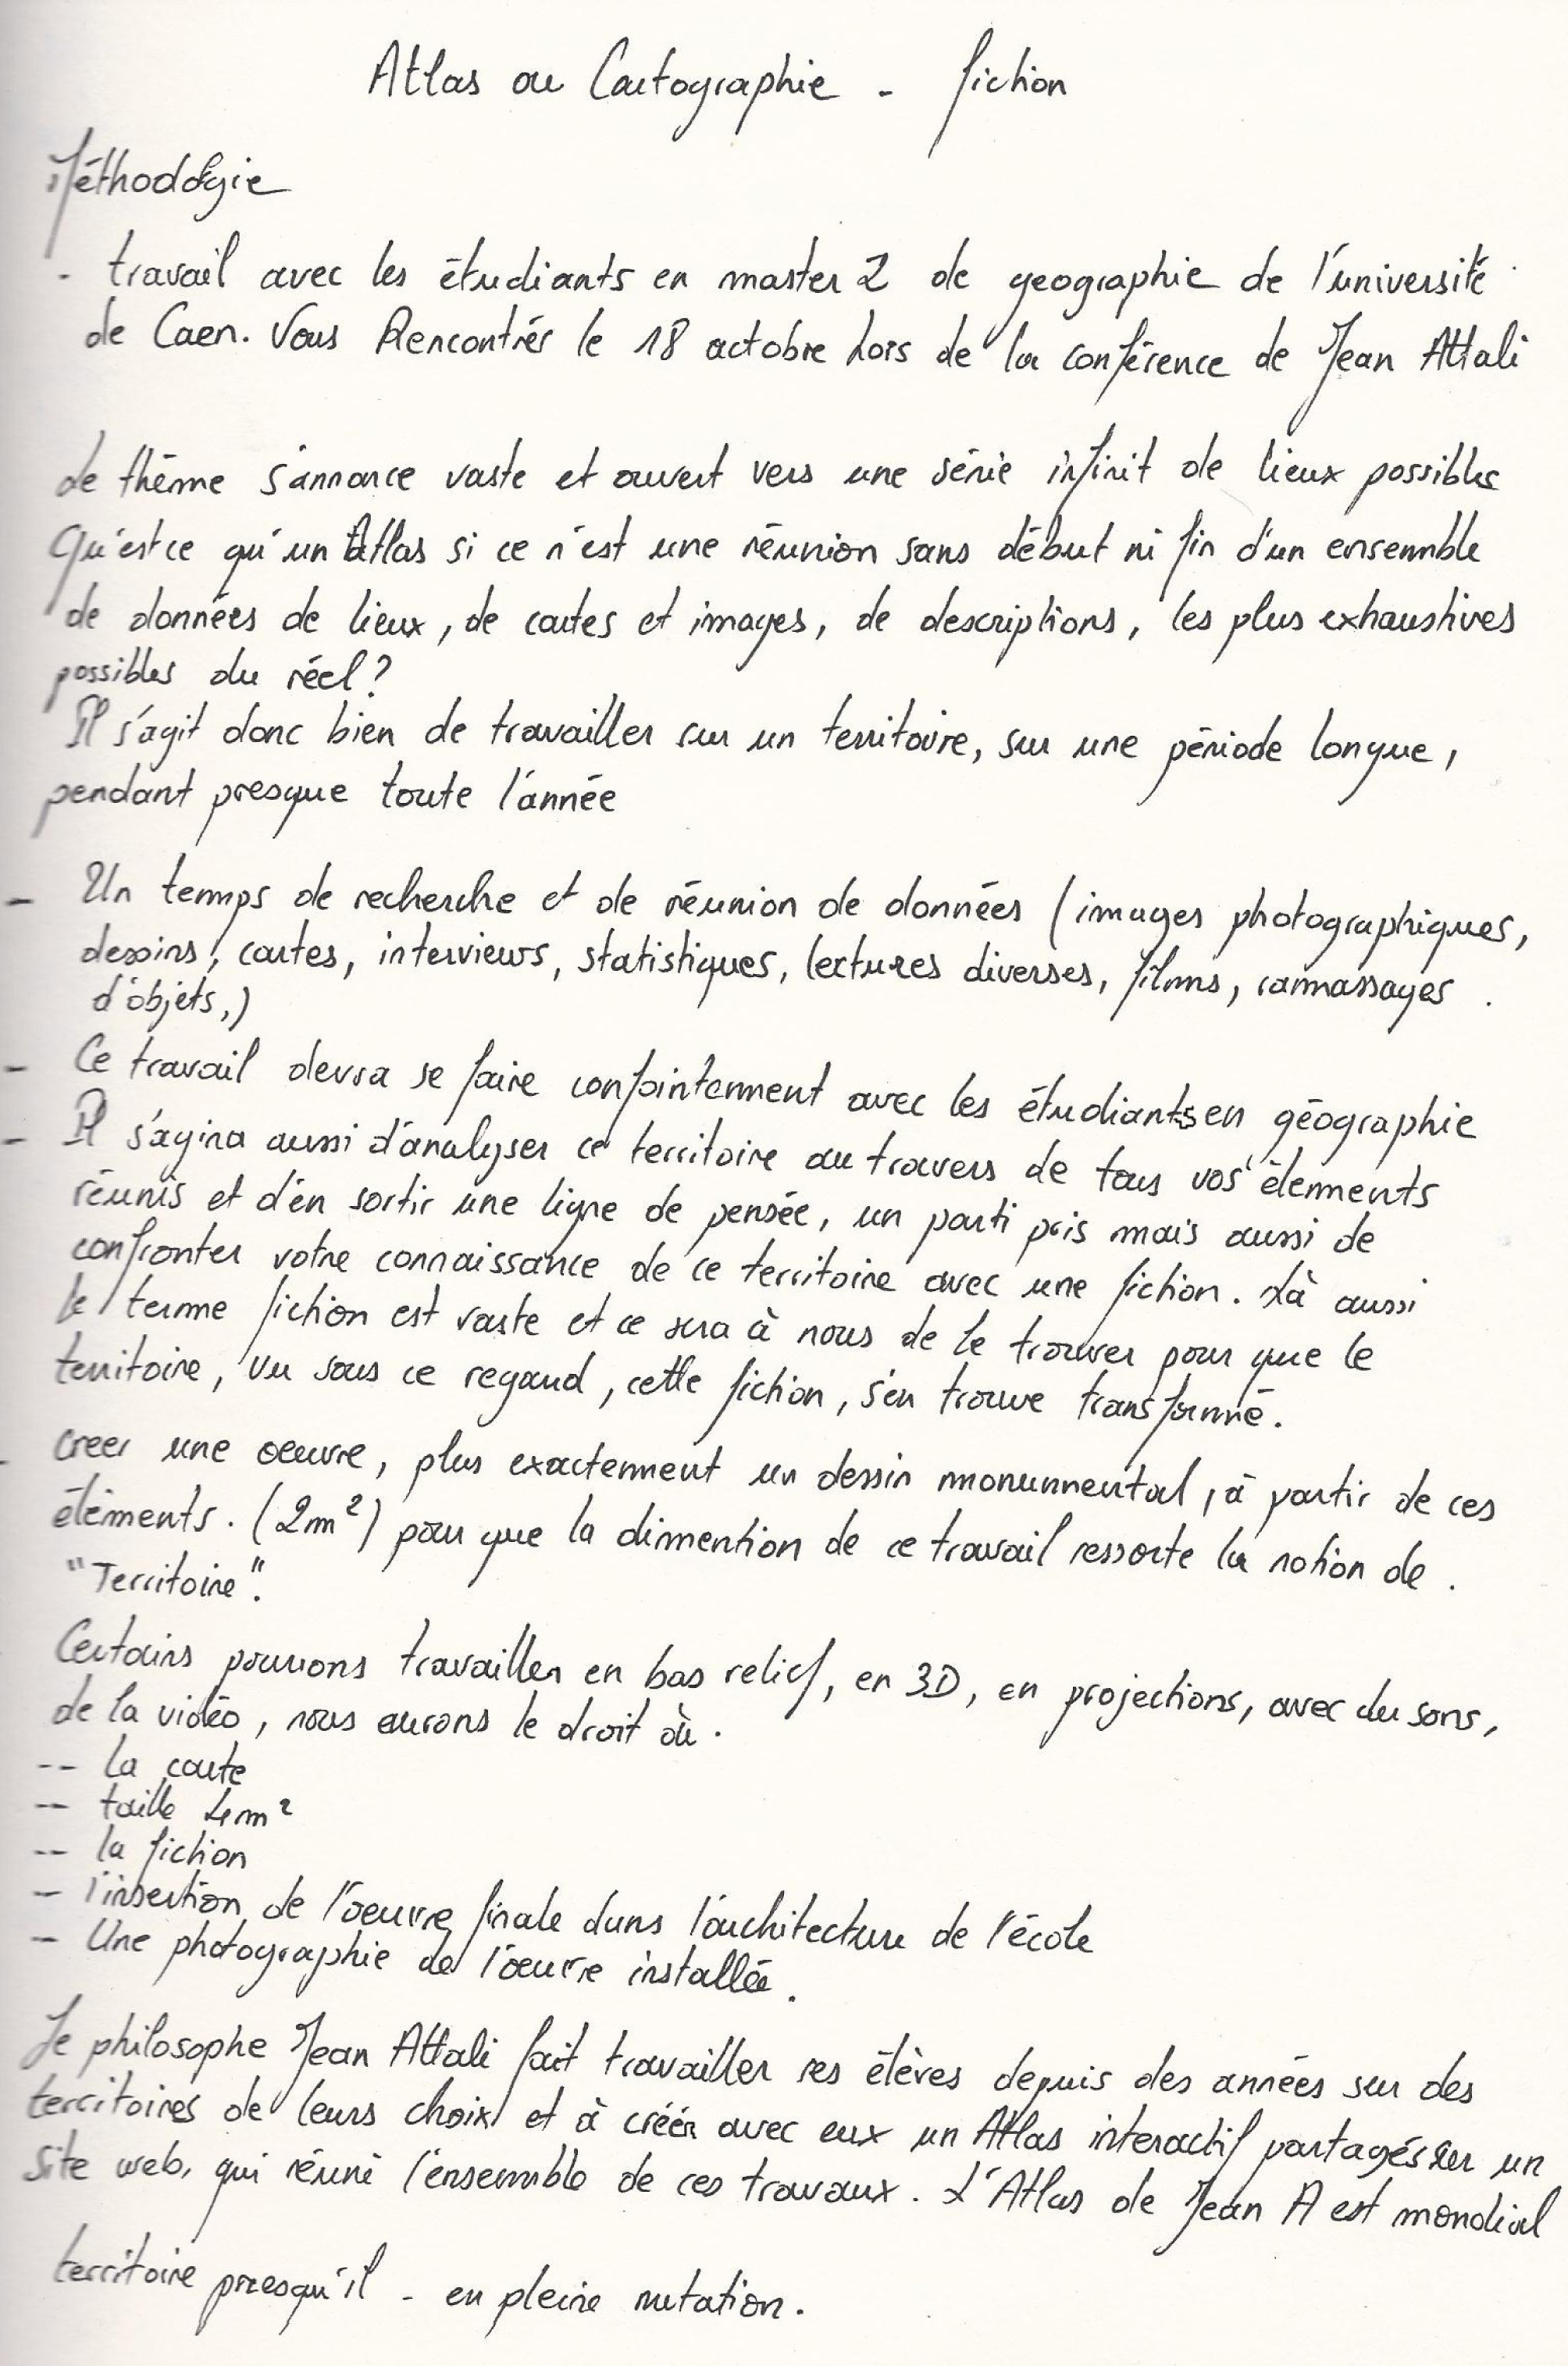 Atlas ou Cartographie - fiction
Méthodologie
- travail avec les étudiants en master 2 de geographie de l'université
de Caen. Vous Rencontrés le 18 octobre Lors de la conférence de Jean Attali
Le thème s'annonce vaste et ouvert vers une série infinit de lieux possibles
Qu'est ce qu'un Atlas si ce n'est une réunion sans début ni fin d'un ensemble
de données de lieux, de cartes et images, de descriptions, les plus exhaustives
possibles du réel?
Il s'agit donc bien de travailler sur un territoire, sur une période longue,
pendant presque toute l'année
- Un temps de recherche et de réunion de données (images photographiques,
dessins, cartes, interviews, statistiques, lectures diverses, films, ramassages
d'objets,)
- Ce travail devra se faire conjointement avec les étudiants en géographie
- Il s'agira aussi d'analyser ce territoire au travers de tous vos élements
réunis et d'en sortir une ligne de pensée, un parti pris mais aussi de
confronter votre connaissance de ce territoire avec une fiction. Là aussi
le terme fiction est vaste et ce sera à nous de le trouver pour que le
territoire, vu sous ce regard, cette fiction, s'en trouve transformé.
- Creer une oeuvre, plus exactement un dessin monumental, à partir de ces
éléments. (2m²) pour que la dimention de ce travail ressorte la notion de
"Territoire".
Certains pourrons travailler en bas relief, en 3D, en projections, avec du sons,
de la vidéo, nous aurons le droit à.
-- la carte
-- taille 4m²
-- la fiction
- l'insertion de l'oeuvre finale dans l'architecture de l'école
- Une photographie de l'oeuvre installée.
Le philosophe Jean Attali fait travailler ses élèves depuis des années sur des
territoires de leurs choix et à créér avec eux un Atlas interactif partagés sur un
Site web, qui réuni l'ensemble de ces travaux. L'Atlas de Jean A est mondial
territoire presqu'il - en pleine mutation.